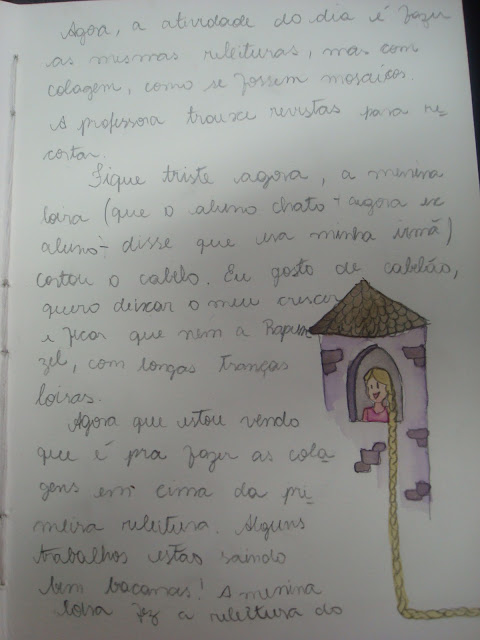 Agora, a atividade do dia é fazer
as mesmas releituras, mas com
colagem, como se fossem mosaicos.
A professora trouxe revistas para re-
cortar.
Fique triste agora, a menina
loira (que o aluno chato - agora ex
aluno - disse que era minha irmã)
cortou o cabelo. Eu gosto de cabelão,
quero deixar o meu crescer
e ficar que nem a Rapun
zel, com longas tranças
loiras.
Agora que estou vendo
que é pra fazer as cola-
gens em cima da pri-
meira releitura. Alguns
trabalhos estão saindo
bem bacanas! A menina
loira fez a releitura do